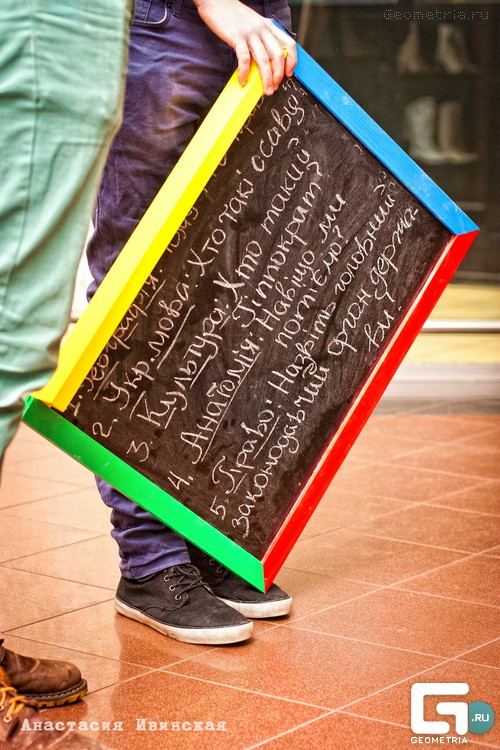 Geometria.ru
1. Географія:
2. Укр. мова: Хто такі
3. Культура: Хто такий
Гіппократ?
4. Анатомія: Навіщо ми
потіємо?
5. Право: Назвіть головний
законодавчий орган держа-
ви?
Анастасия Ивинская
G .RU
GEOMETRIA